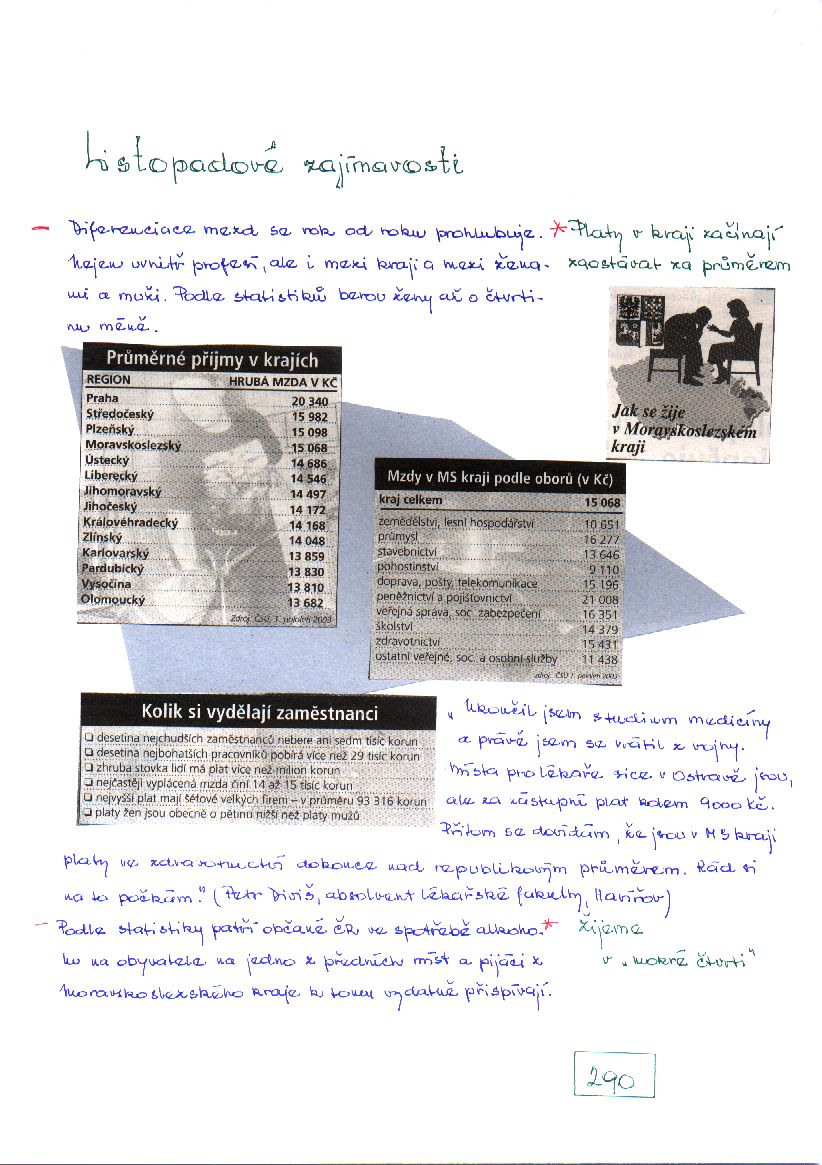 Listopadové zajímavosti
– Diferenciace mezd se rok od roku prohlubuje.
Nejen uvnitř profesí, ale i mezi kraji a mezi žena-
mi a muži. Podle statistiků berou ženy až o čtvrti-
nu méně.
* Platy v kraji začínají
zaostávat za průměrem
Jak se žije
v Moravskoslezském
kraji
Průměrné příjmy v krajích
REGION HRUBÁ MZDA V KČ
Praha 20 340
Středočeský 15 982
Plzeňský 15 098
Moravskoslezský 15 068
Ústecký 14 686
Liberecký 14 546
Jihomoravský 14 497
Jihočeský 14 172
Královéhradecký 14 168
Zlínský 14 048
Karlovarský 13 859
Pardubický 13 830
Vysočina 13 810
Olomoucký 13 682
Zdroj: ČSÚ, 1. pololetí 2003
Mzdy v MS kraji podle oborů (v Kč)
kraj celkem 15 068
zemědělství, lesní hospodářství 10 651
průmysl 16 277
stavebnictví 13 646
pohostinství 9 110
doprava, pošty, telekomunikace 15 196
peněžnictví a pojišťovnictví 21 008
veřejná správa, soc. zabezpečení 16 351
školství 14 379
zdravotnictví 15 431
ostatní veřejné, soc. a osobní služby 11 438
zdroj: ČSÚ 1. pololetí 2003
Kolik si vydělají zaměstnanci
❏ desetina nejchudších zaměstnanců nebere ani sedm tisíc korun
❏ desetina nejbohatších pracovníků pobírá více než 29 tisíc korun
❏ zhruba stovka lidí má plat více než milion korun
❏ nejčastěji vyplácená mzda činí 14 až 15 tisíc korun
❏ nejvyšší plat mají šéfové velkých firem – v průměru 93 316 korun
❏ platy žen jsou obecně o pětinu nižší než platy mužů
„Ukončil jsem studium medicíny
a právě jsem se vrátil z vojny.
Místa pro lékaře sice v Ostravě jsou,
ale za nástupní plat kolem 9000 Kč.
Přitom se dovídám, že jsou v MS kraji
platy ve zdravotnictví dokonce nad republikovým průměrem. Rád si
na to počkám." (Petr Diviš, absolvent lékařské fakulty, Havířov)
– Podle statistiky patří občané ČR ve spotřebě alkoho-
lu na obyvatele na jedno z předních míst a pijáci z
Moravskoslezského kraje k tomu vydatně přispívají.
* Žijeme
v „mokré čtvrti"
290